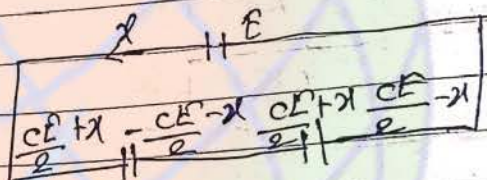 x E
CE/2 +x -CE/2 -x CE/2 +x CE/2 -x